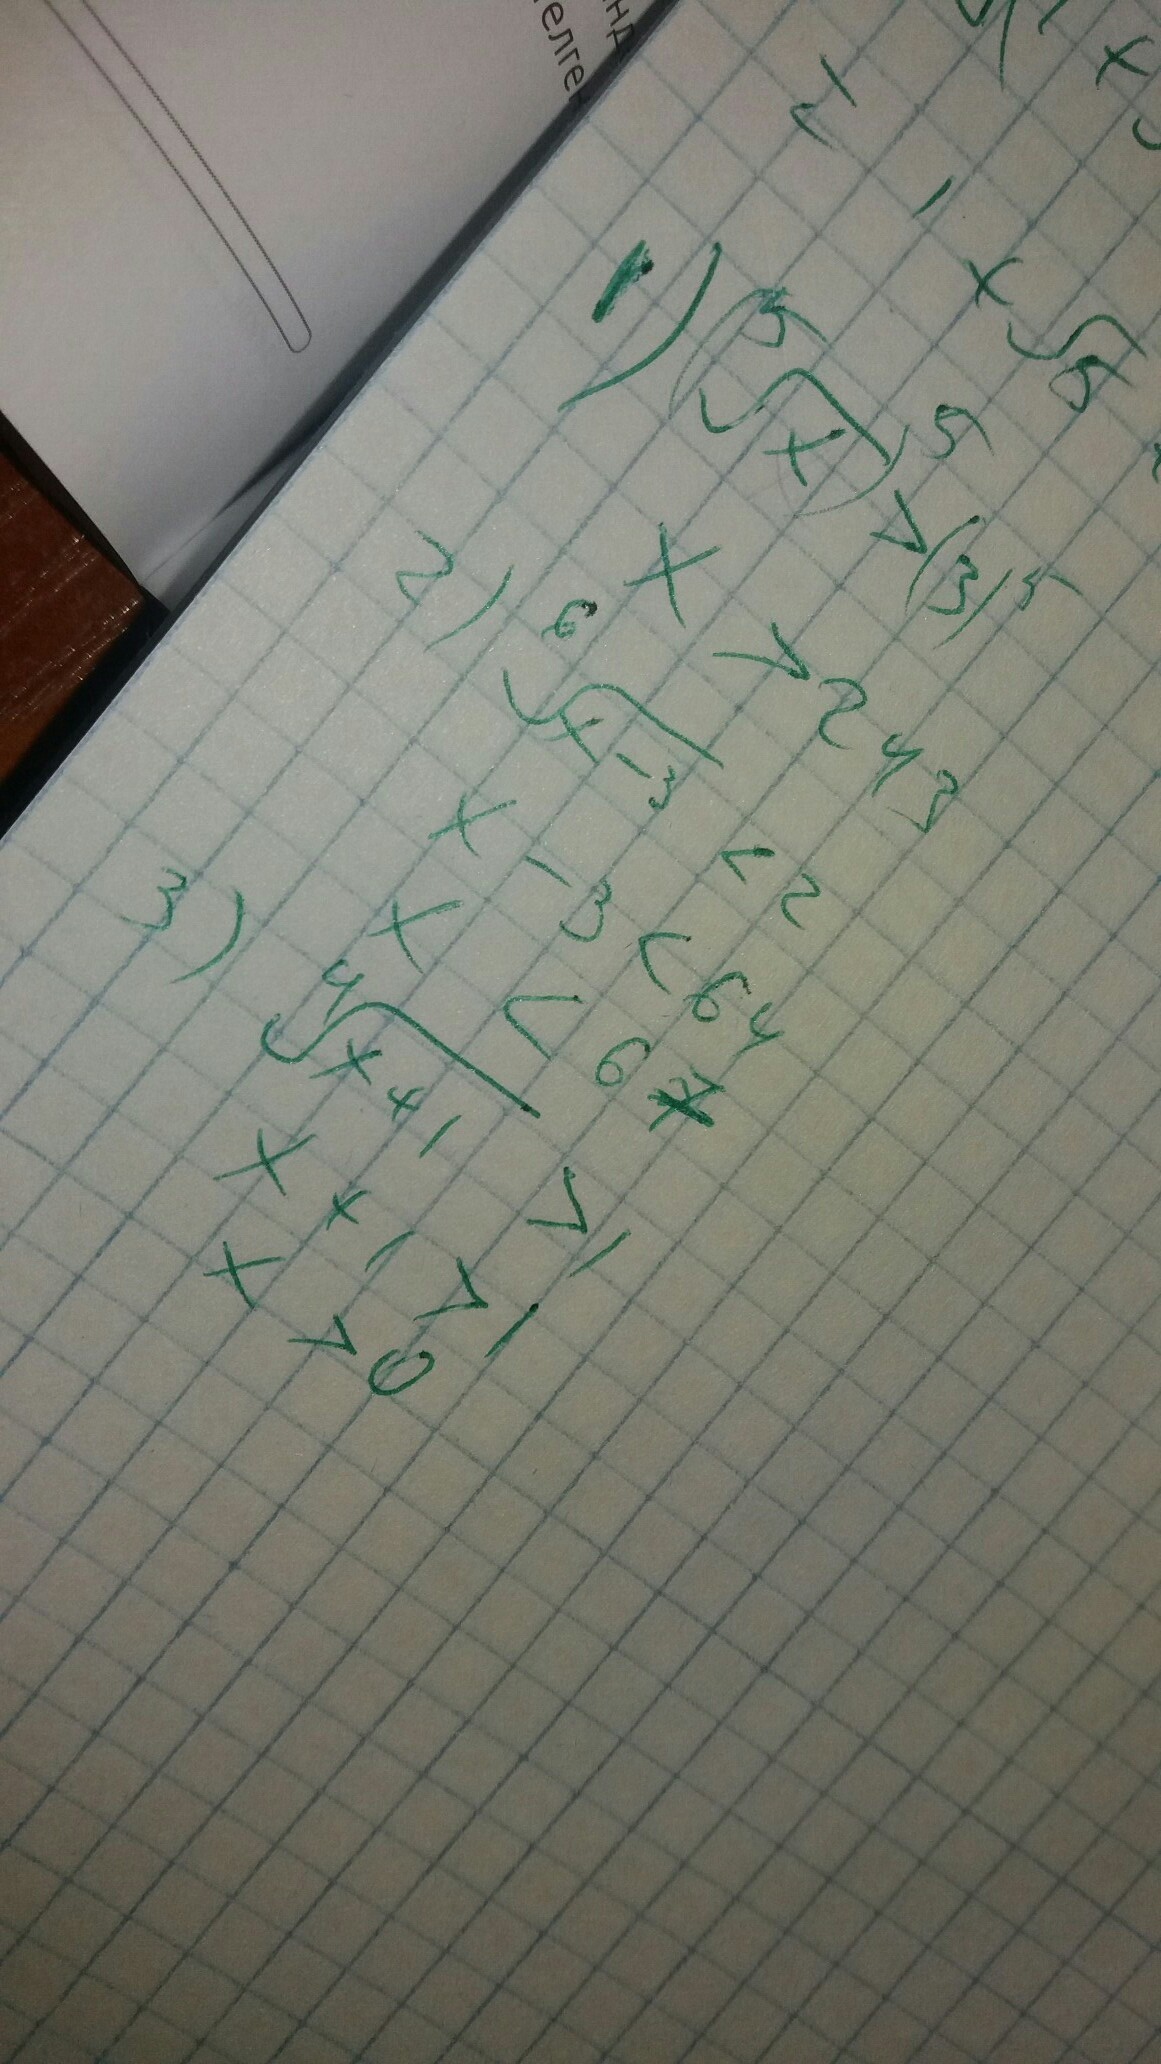 елген
1) (⁵√x)⁵ > (3)⁵
x > 243
2) ⁶√x-3 < 2
x - 3 < 64
x < 67
3) ⁴√x+1 > 1
x + 1 > 1
x > 0